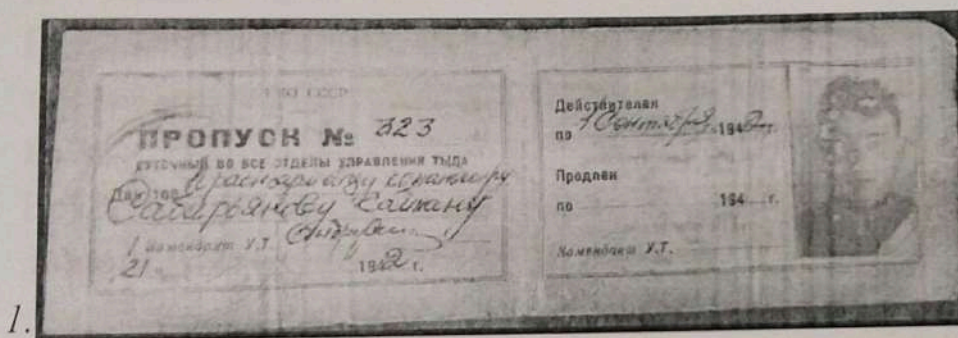 НКО СССР
ПРОПУСК № 323
СУТОЧНЫЙ ВО ВСЕ ОТДЕЛЫ УПРАВЛЕНИЯ ТЫЛА
Дан тов. Красноармейцу
Комендант У.Т.
21 1942 г.
Действителен
по 1 Сентября 1942 г.
Продлен
по 194 г.
Комендант У.Т.
1.